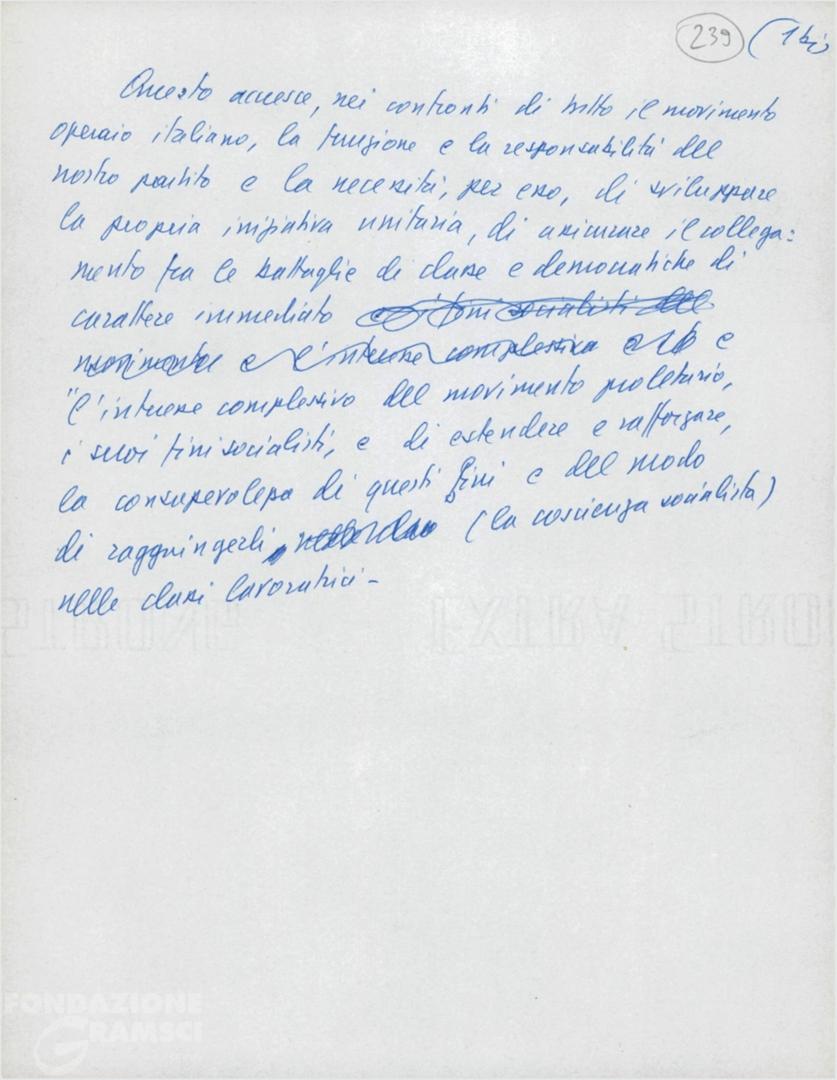 239 (1 bis
Questo accresce, nei confronti di tutto il movimento
operaio italiano, la funzione e la responsabilità del
nostro partito e la necessità, per esso, di sviluppare
la propria iniziativa unitaria, di assicurare il collega=
mento fra le battaglie di classe e democratiche di
carattere immediato e i fini socialisti del
movimento e l'interesse complessivo e
l'interesse complessivo del movimento proletario,
i suoi fini socialisti, e di estendere e rafforzare,
la consapevolezza di questi fini e del modo
di raggiungerli, (la coscienza socialista)
nelle classi lavoratrici -
EXTRA STRONG
FONDAZIONE
GRAMSCI